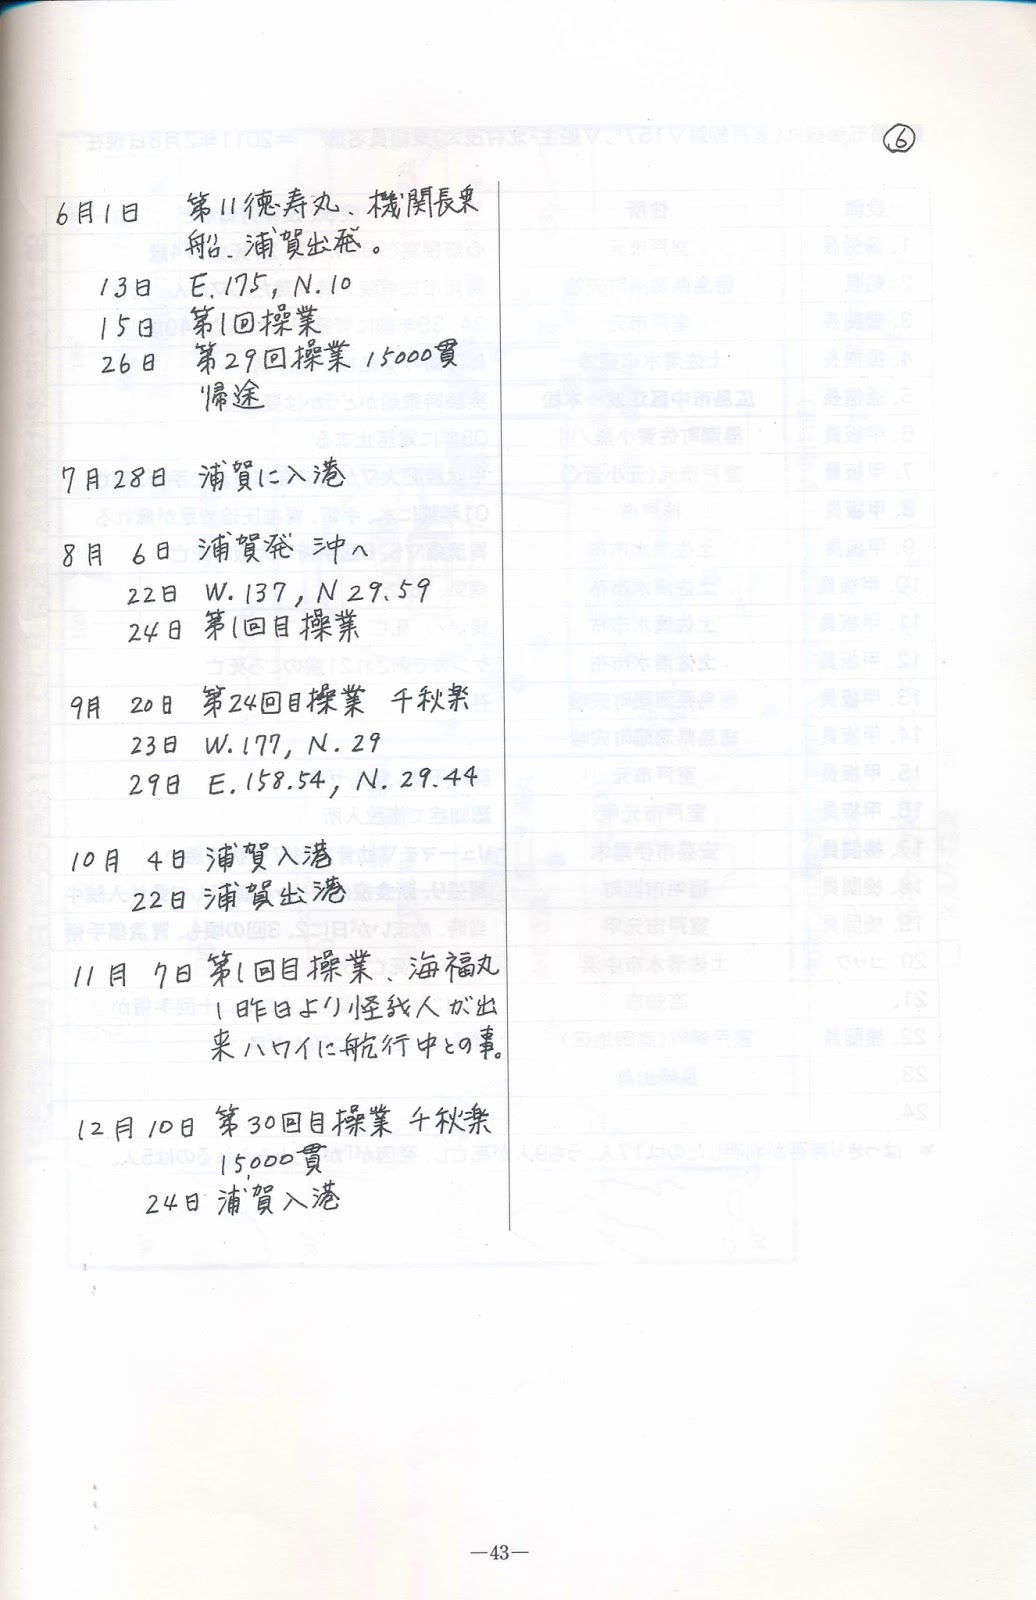 ⑥
6月1日 第11徳寿丸、機関長乗
船、浦賀出発。
13日 E.175, N.10
15日 第1回操業
26日 第29回操業 15000貫
帰途
7月28日 浦賀に入港
8月 6日 浦賀発 沖へ
22日 W.137, N29.59
24日 第1回目操業
9月 20日 第24回目操業 千秋楽
23日 W.177, N.29
29日 E.158.54, N.29.44
10月 4日 浦賀入港
22日 浦賀出港
11月 7日 第1回目操業、海福丸
1昨日より怪我人が出
来ハワイに航行中との事。
12月10日 第30回目操業 千秋楽
15,000貫
24日 浦賀入港
—43—